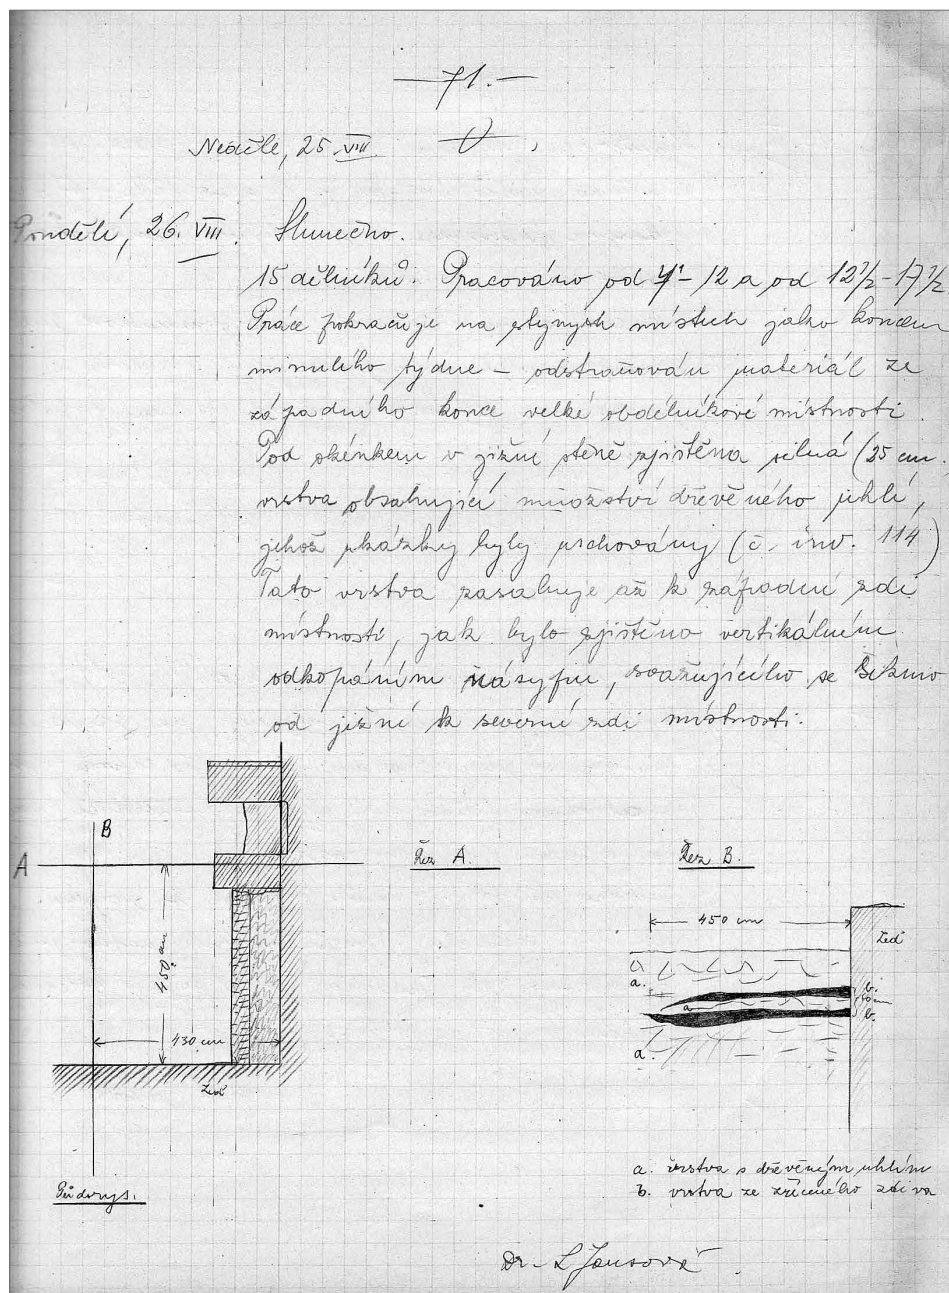 — 71. —
Neděle, 25. VIII.
Pondělí, 26. VIII. Slunečno.
15 dělníků. Pracováno od 7 - 12 a od 12½ - 17½
Práce pokračuje na stejných místech jako koncem
minulého týdne – odstraňován materiál ze
západního konce velké obdélníkové místnosti.
Pod okénkem v jižní stěně zjištěna silná (25 cm.
vrstva obsahující množství dřevěného uhlí,
jehož ukázky byly uschovány (č. inv. 114)
Tato vrstva zasahuje až k západní zdi
místnosti, jak bylo zjištěno vertikálním
odkopáním násypu, svažujícího se šikmo
od jižní k severní zdi místnosti.
B
A
Řez A.
Řez B.
450 cm
Zeď
a.
b.
a
b.
a.
450 cm
430 cm
Zeď
Půdorys.
a. vrstva s dřevěným uhlím
b. vrstva ze zříceného zdiva
Dr. L Jansová